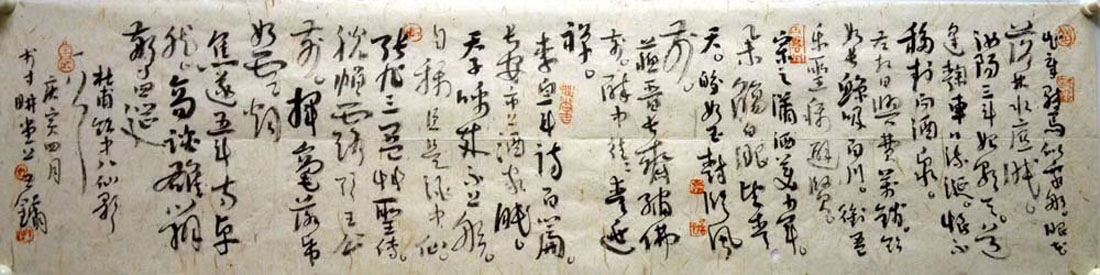 知章骑馬似乘船。眼花
落井水底眠。
汝陽三斗始朝天。道
逢麴車口流涎。恨不
移封向酒泉。
左相日興費萬錢。飲
如长鲸吸百川。銜盃
乐聖稱避賢。
宗之瀟洒美少年。
举觴白眼望青
天。皎如玉樹临风
前。
蘇晋长齋繡佛
前。醉中往往爱逃
禅。
李白斗诗百篇。
长安市上酒家眠。
天子呼来不上船。
自稱臣是酒中仙。
张旭三盃草聖傳。
脱帽露頂王公
前。揮毫落紙
如雲烟
焦遂五斗方卓
然。高談雄辯
驚四筵
杜甫飲中八仙歌
庚寅四月